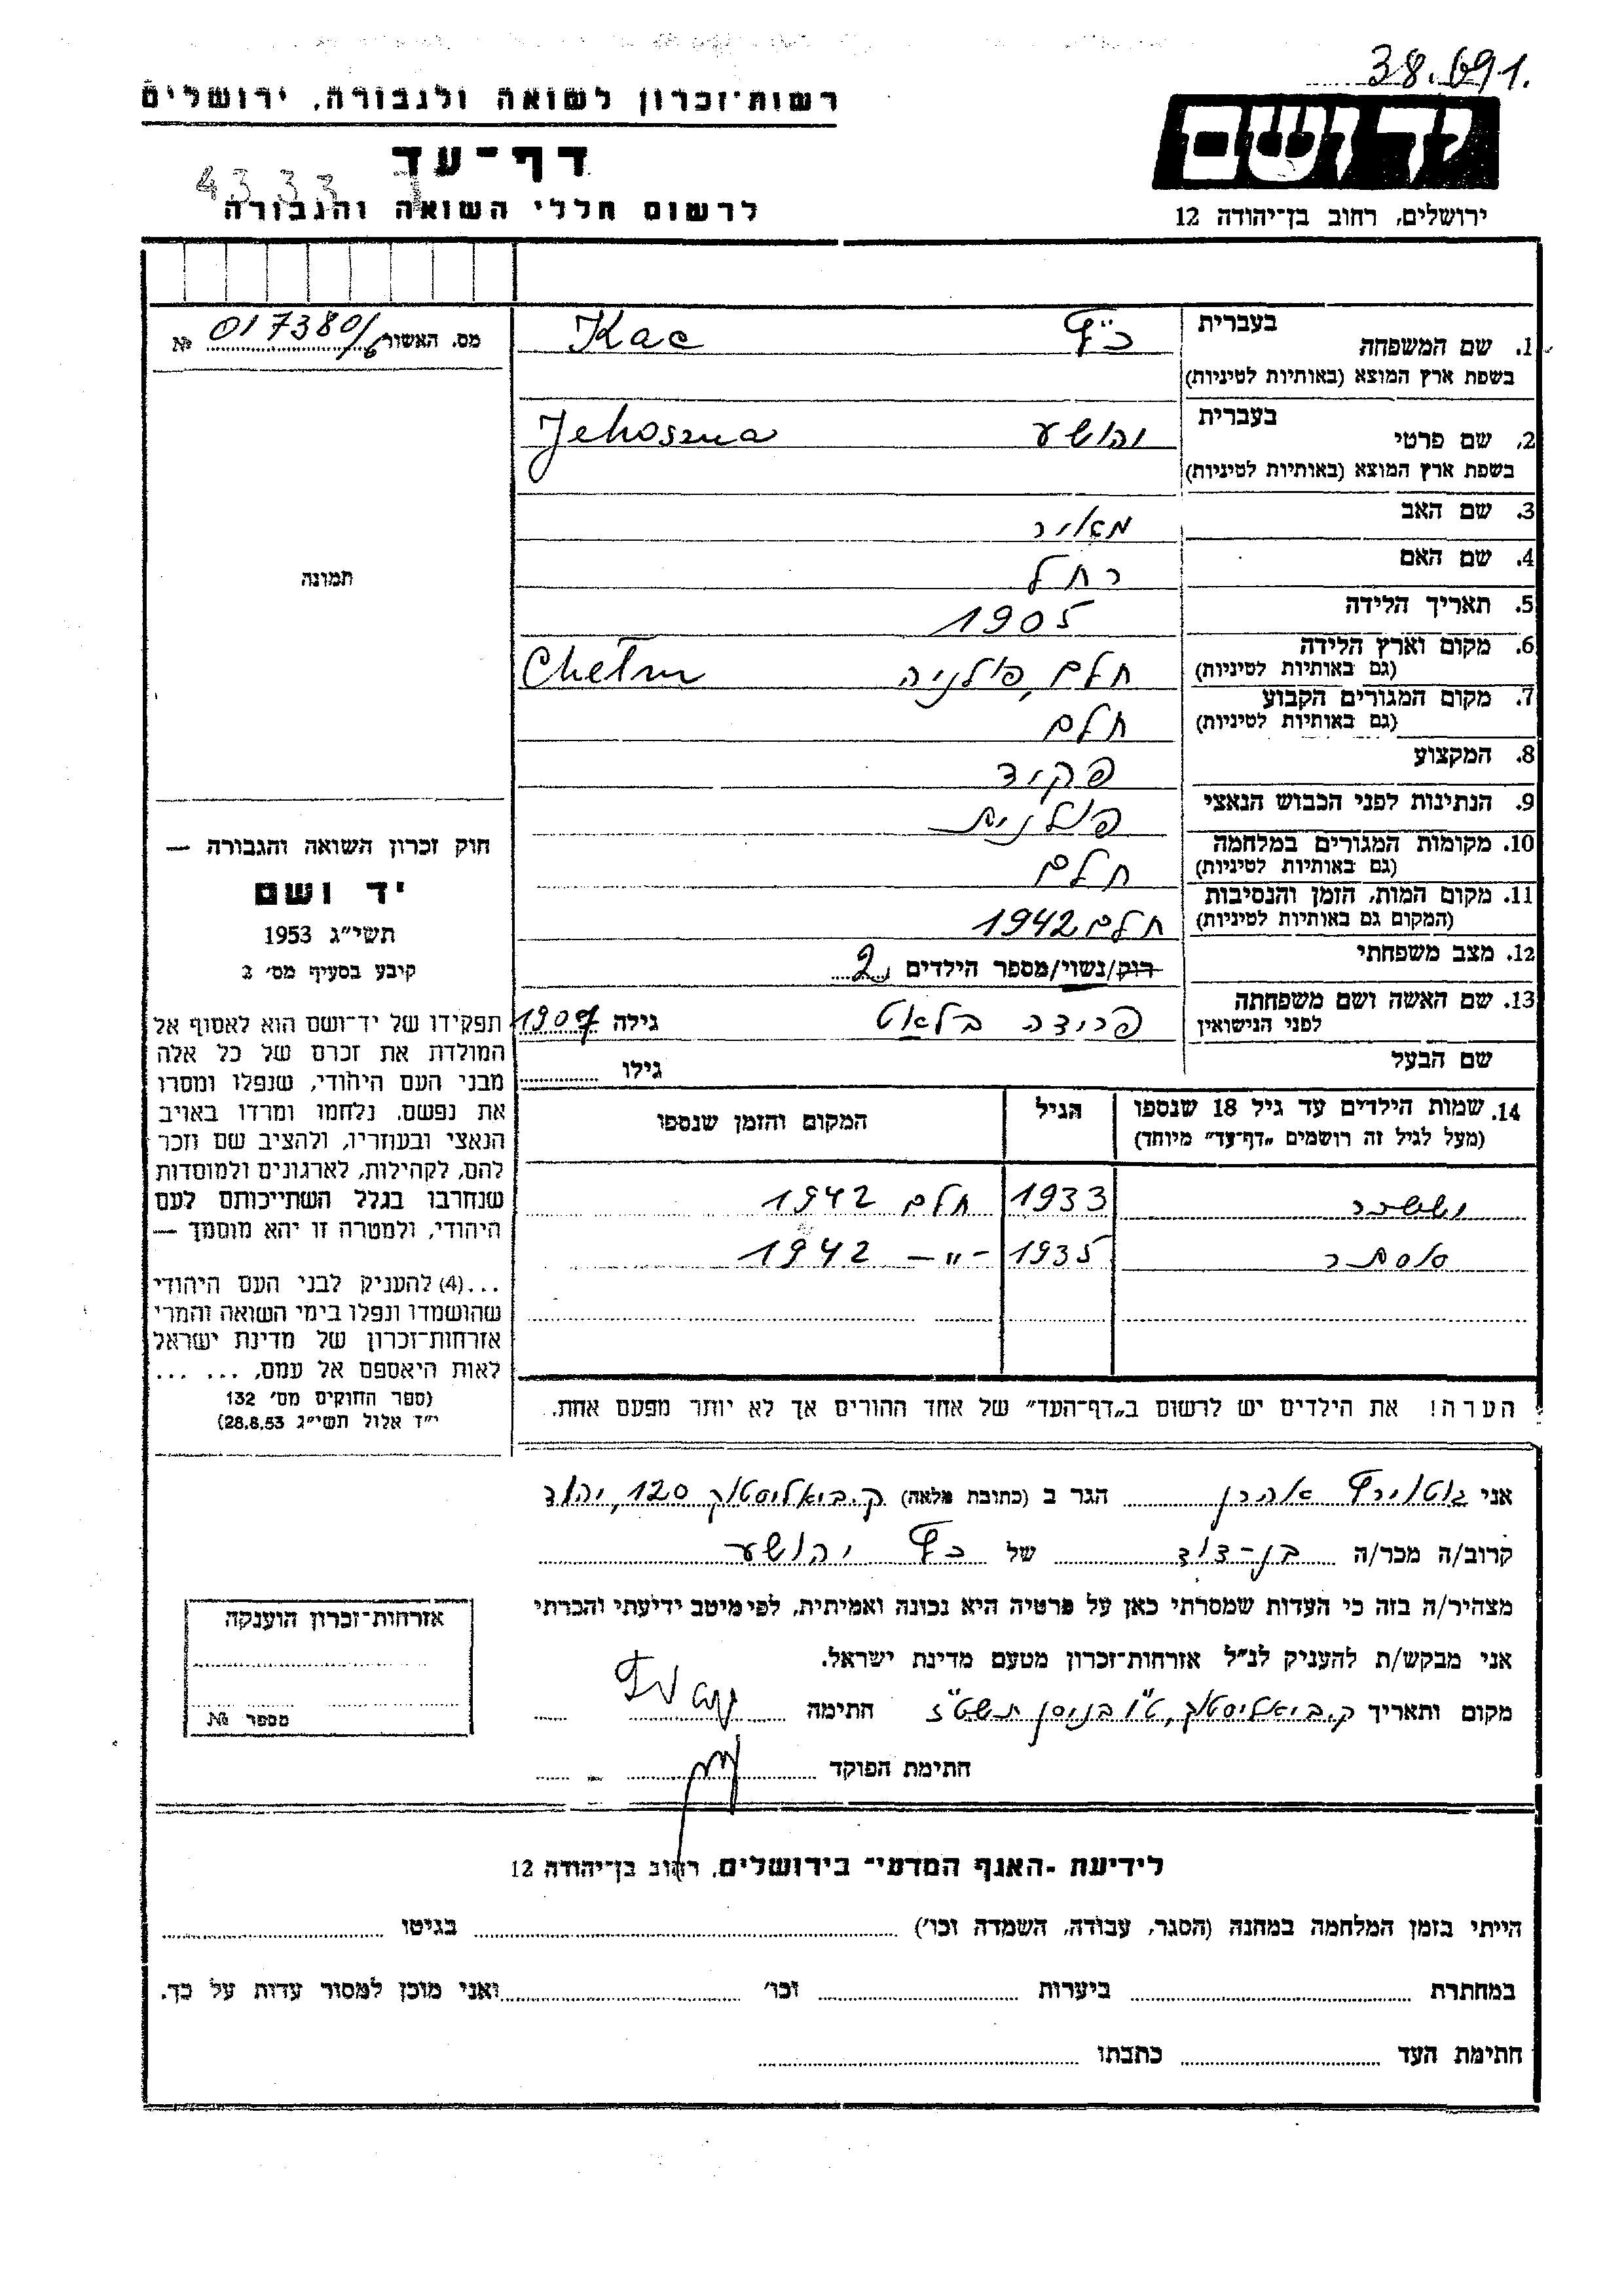 38.691.
רשות־זכרון לשואה ולגבורה, ירושלים
יד ושם
דף־עד
4333
לרשום חללי השואה והגבורה
ירושלים, רחוב בן־יהודה 12
מס. האשור 017380/6 №
תמונה
1. שם המשפחה בעברית כ"ץ Kac
בשפת ארץ המוצא (באותיות לטיניות)
2. שם פרטי בעברית יהושע Jehoszua
בשפת ארץ המוצא (באותיות לטיניות)
3. שם האב מאיר
4. שם האם רחל
5. תאריך הלידה 1905
6. מקום וארץ הלידה חלם, פולניה Chełm
(גם באותיות לטיניות)
7. מקום המגורים הקבוע חלם
(גם באותיות לטיניות)
8. המקצוע פקיד
9. הנתינות לפני הכבוש הנאצי פולנית
10. מקומות המגורים במלחמה חלם
(גם באותיות לטיניות)
11. מקום המות, הזמן והנסיבות חלם 1942
(המקום גם באותיות לטיניות)
12. מצב משפחתי רוק/נשוי/מספר הילדים 2
13. שם האשה ושם משפחתה לפני הנישואין פרידה בלאט גילה 1907
שם הבעל גילו
14. שמות הילדים עד גיל 18 שנספו הגיל המקום והזמן שנספו
(מעל לגיל זה רושמים „דף־עד” מיוחד)
יששכר 1933 חלם 1942
אסתר 1935 -"- 1942
הערה! את הילדים יש לרשום ב„דף־העד” של אחד ההורים אך לא יותר מפעם אחת.
חוק זכרון השואה והגבורה —
יד ושם
תשי״ג 1953
קיבע בסעיף מס׳ 2
תפקידו של יד־ושם הוא לאסוף אל
המולדת את זכרם של כל אלה
מבני העם היהודי, שנפלו ומסרו
את נפשם, נלחמו ומרדו באויב
הנאצי ובעוזריו, ולהציב שם וזכר
להם, לקהילות, לארגונים ולמוסדות
שנחרבו בגלל השתייכותם לעם
היהודי, ולמטרה זו יהא מוסמך —
...(4) להעניק לבני העם היהודי
שהושמדו ונפלו בימי השואה והמרי
אזרחות־זכרון של מדינת ישראל
לאות היאספם אל עמם, ... ...
(ספר החוקים מס׳ 132
י״ד אלול תשי״ג 28.8.53)
אני אהרן הגר ב (כתובת מלאה) ק. ביאליסטוק 120, יהוד
קרוב/ה מכר/ה בן-דוד של כץ יהושע
מצהיר/ה בזה כי העדות שמסרתי כאן על פרטיה היא נכונה ואמיתית, לפי מיטב ידיעתי והכרתי
אני מבקש/ת להעניק לנ״ל אזרחות־זכרון מטעם מדינת ישראל.
מקום ותאריך ק. ביאליסטוק, ט"ו בניסן תשט"ז חתימה
חתימת הפוקד
אזרחות־זכרון הוענקה
מספר №
לידיעת ־האגף המדעי־ בירושלים, רחוב בן־יהודה 12
הייתי בזמן המלחמה במחנה (הסגר, עבודה, השמדה וכו׳) בגיטו
במחתרת ביערות וכו׳ ואני מוכן למסור עדות על כך.
חתימת העד כתבתו